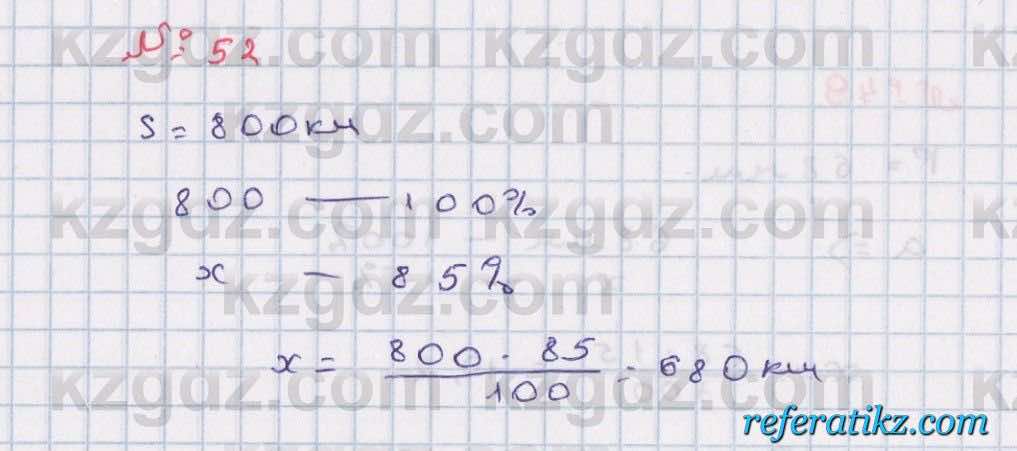 № 52
S = 800 км
800 — 100%
x — 85%
x = 800 · 85 / 100 = 680 км
kzgdz.com
referatikz.com